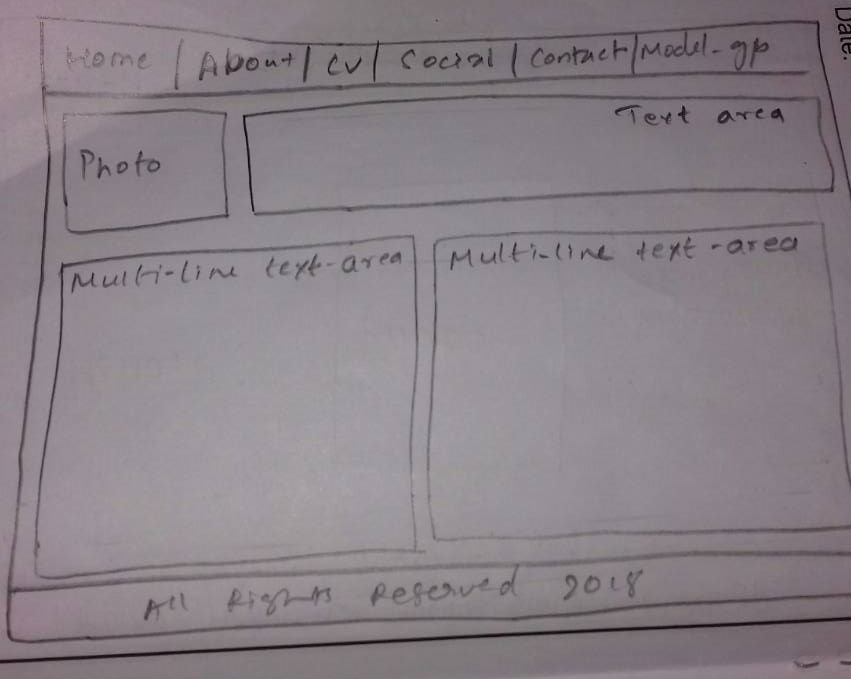 Home | About | CV | Social | Contact | Model-gp
Photo
Text area
Multi-line text-area
Multi-line text-area
All Rights Reserved 2018
Date: